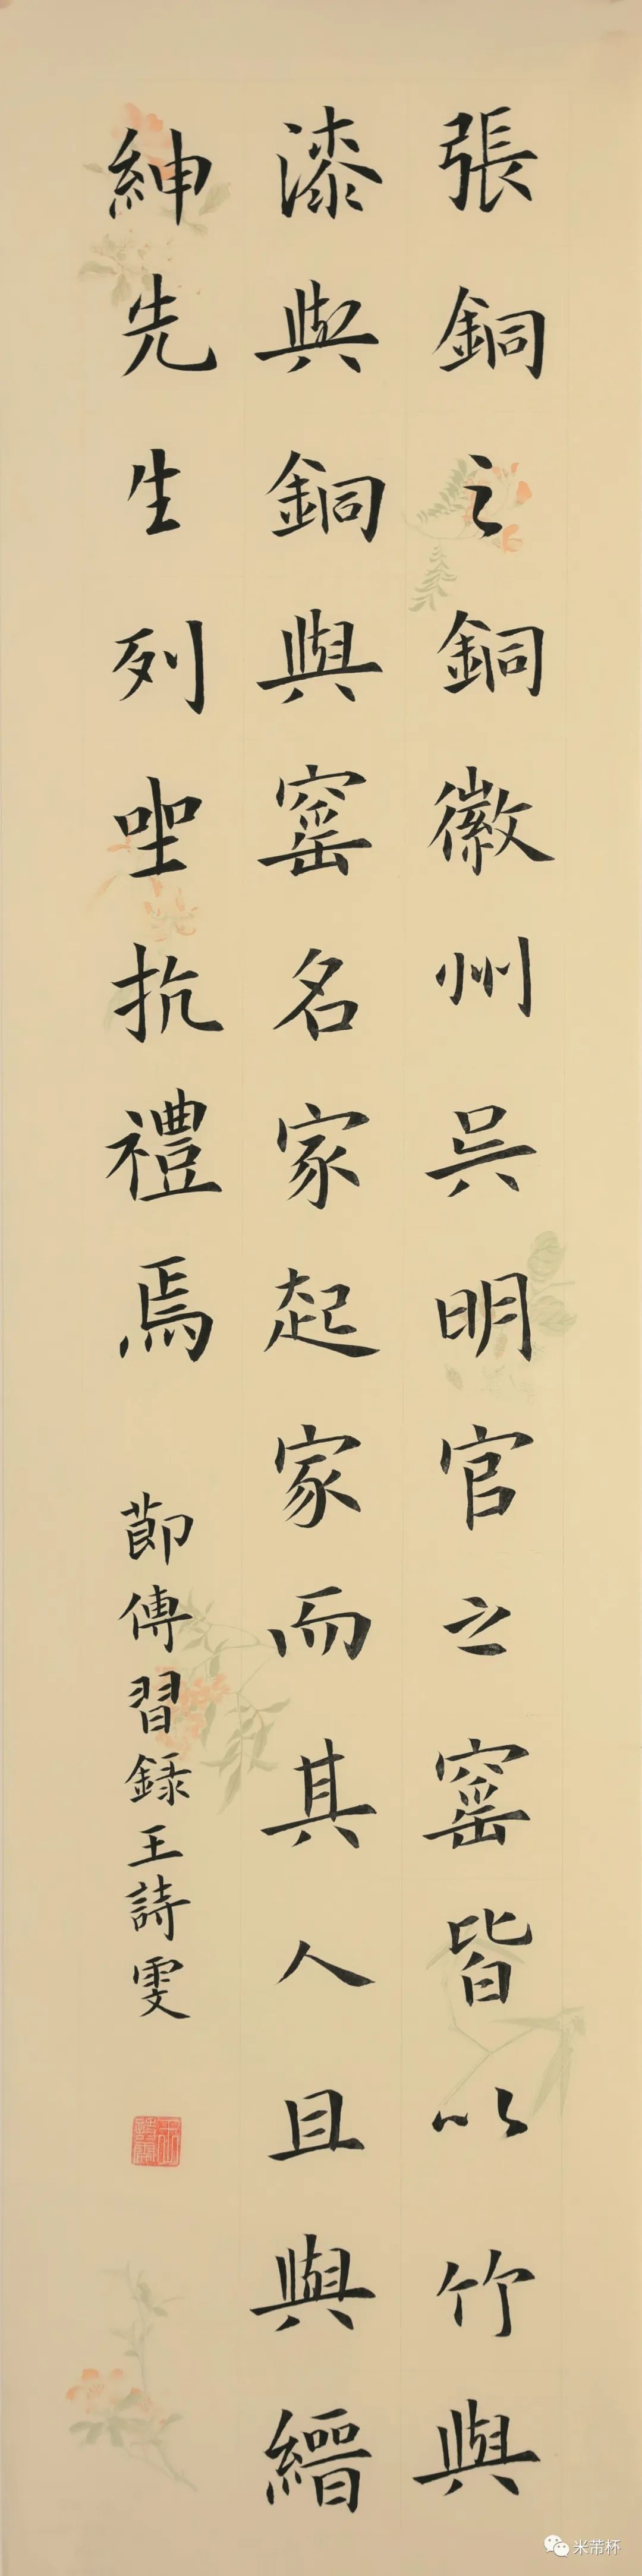 張銅之銅徽州吳明官之窰皆以竹與
漆與銅與窰名家起家而其人且與縉
紳先生列坐抗禮焉
節傳習錄王詩雯
米芾杯